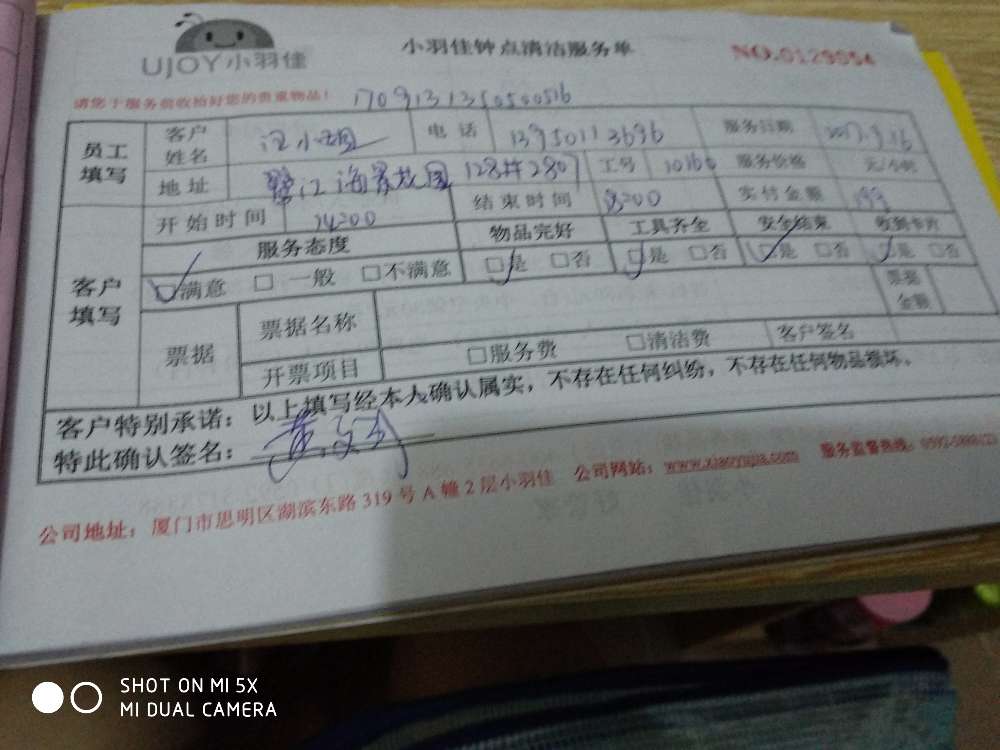 UJOY小羽佳
小羽佳钟点清洁服务单
NO.0129954
请您于服务前收拾好您的贵重物品！ 170913135050516
员工填写 客户姓名 江小姐 电话 13950113696 服务日期 2017.9.16
地址 鹭江海景花园128#2807 工号 10160 服务价格 元/小时
客户填写 开始时间 14:00 结束时间 实付金额
服务态度 物品完好 工具齐全 安全结束 收到卡片
□满意 □一般 □不满意 □是 □否 □是 □否 □是 □否 □是 □否
票据 票据名称 票据金额
开票项目 □服务费 □清洁费 客户签名
客户特别承诺：以上填写经本人确认属实，不存在任何纠纷，不存在任何物品损坏。
特此确认签名：
公司地址：厦门市思明区湖滨东路319号A幢2层小羽佳 公司网站：www.xiaoyujia.com 服务监督热线：
SHOT ON MI 5X
MI DUAL CAMERA